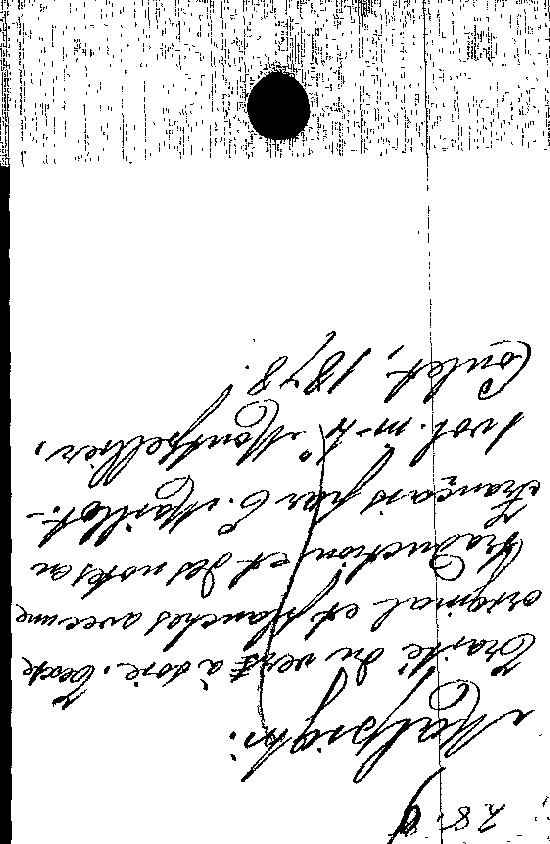 28.
Malpighi.
Traité du vers à soie. Texte
original et planches avec une
traduction et des notes en
français par E. Maillot.-
1 vol. in-4° Montpellier,
Coulet, 1878.